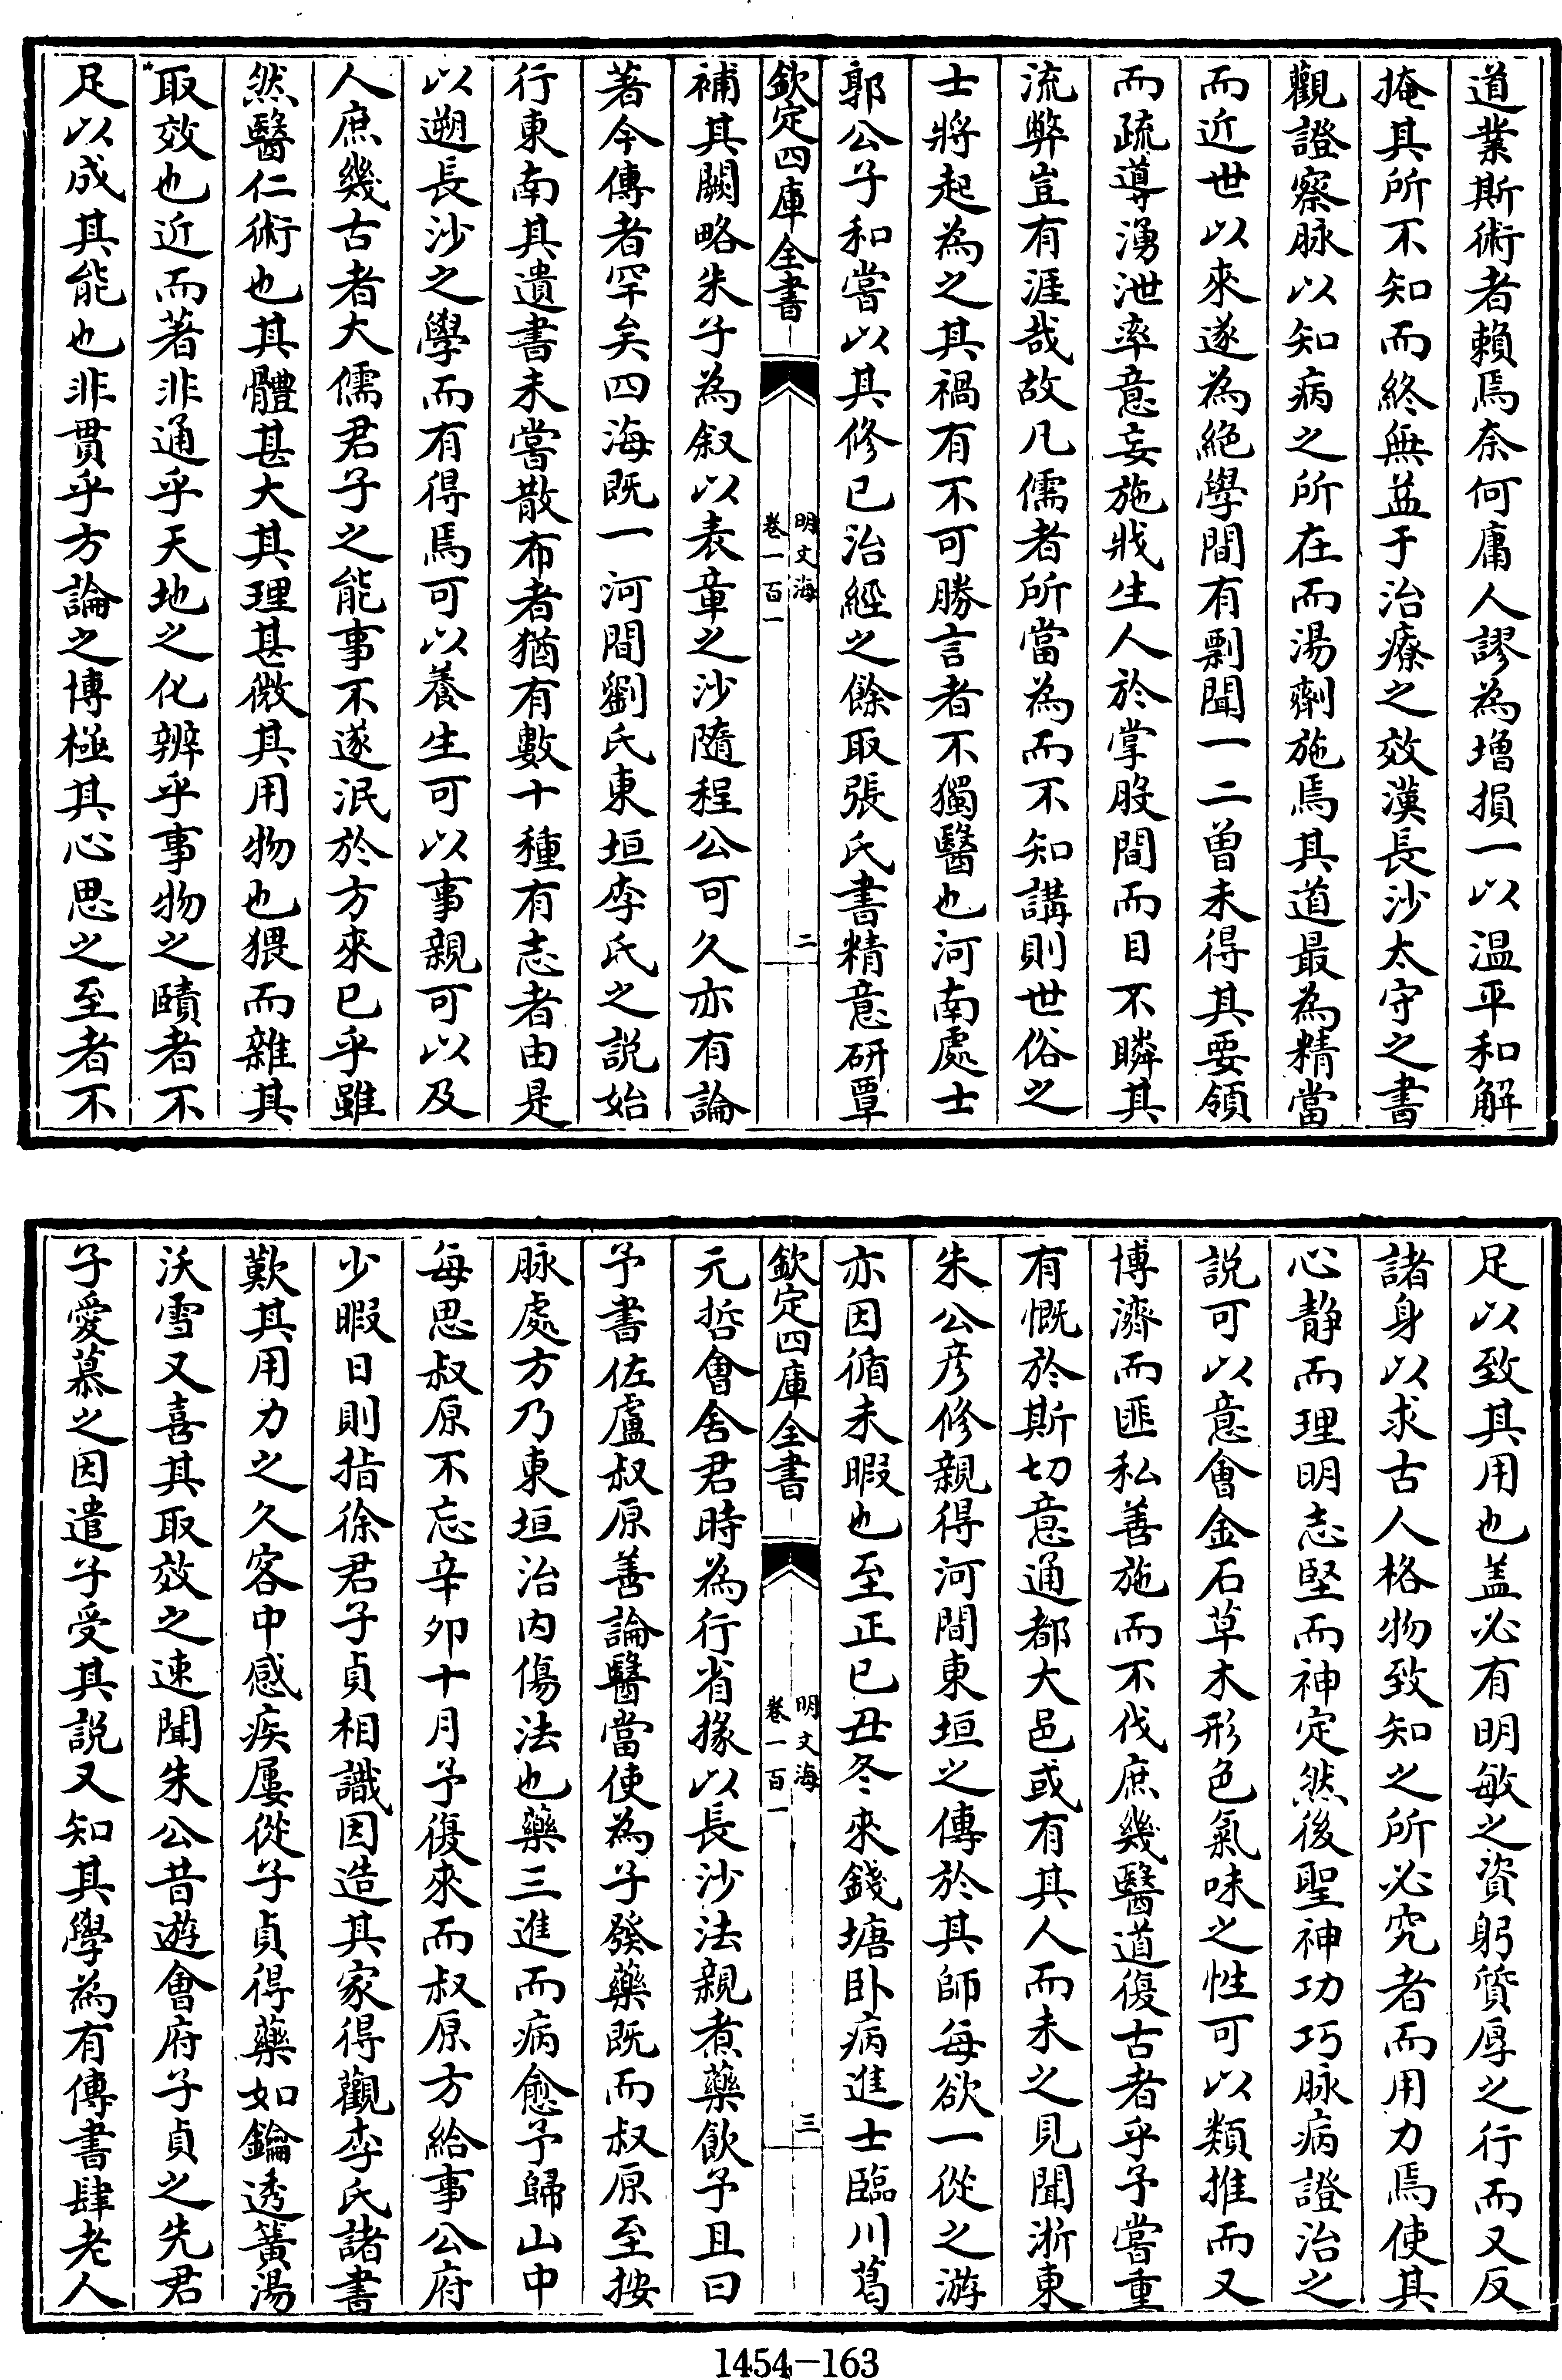 道業斯術者賴焉奈何庸人謬為增損一以温平和解
掩其所不知而終無益于治療之效漢長沙太守之書
觀證察脉以知病之所在而湯劑施焉其道最為精當
而近世以來遂為絶學間有剽聞一二曾未得其要領
而疏導湧泄率意妄施戕生人於掌股間而目不瞬其
流弊豈有涯哉故凡儒者所當為而不知講則世俗之
士將起為之其禍有不可勝言者不獨醫也河南處士
郭公子和嘗以其修已治經之餘取張氏書精意研覃
欽定四庫全書
明文海
卷一百一
二
補其闕略朱子為叙以表章之沙隨程公可久亦有論
著今傳者罕矣四海既一河間劉氏東垣李氏之説始
行東南其遺書未嘗散布者猶有數十種有志者由是
以遡長沙之學而有得焉可以養生可以事親可以及
人庶幾古者大儒君子之能事不遂泯於方來已乎雖
然醫仁術也其體甚大其理甚微其用物也猥而雜其
取效也近而著非通乎天地之化辨乎事物之賾者不
足以成其能也非貫乎方論之博極其心思之至者不
足以致其用也盖必有明敏之資躬質厚之行而又反
諸身以求古人格物致知之所必究者而用力焉使其
心静而理明志堅而神定然後聖神功巧脉病證治之
説可以意會金石草木形色氣味之性可以類推而又
博濟而匪私善施而不伐庶幾醫道復古者乎予嘗重
有慨於斯切意通都大邑或有其人而未之見聞浙東
朱公彦修親得河間東垣之傳於其師每欲一從之游
亦因循未暇也至正已丑冬來錢塘卧病進士臨川葛
欽定四庫全書
明文海
卷一百一
三
元哲會舍君時為行省掾以長沙法親煮藥飲予且曰
予書佐盧叔原善論醫當使為子發藥既而叔原至按
脉處方乃東垣治内傷法也藥三進而病愈予歸山中
每思叔原不忘辛卯十月予復來而叔原方給事公府
少暇日則指徐君子貞相識因造其家得觀李氏諸書
歎其用力之久客中感疾屢從子貞得藥如鑰透簧湯
沃雪又喜其取效之速聞朱公昔遊會府子貞之先君
子愛慕之因遣子受其説又知其學為有傳書肆老人
1454—163